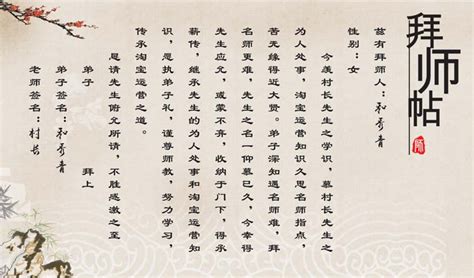 拜师帖
兹有拜师人：和秀青
性别：女
今羡村长先生之学识，慕村长先生之
为人处事，淘宝运营知识久思名师指点，
苦无缘得近大贤。弟子深知遇名师难，拜
名师更难，先生之名一仰慕已久，今幸得
先生应允，或蒙不弃，收纳于门下，得承
薪传，继承先生的为人处事和淘宝运营知
识，恩执弟子礼，谨尊师教，努力学习，
传承淘宝运营之道。
恳请先生俯允所请，不胜感激之至
弟子 拜上
弟子签名：和秀青
老师签名：村长